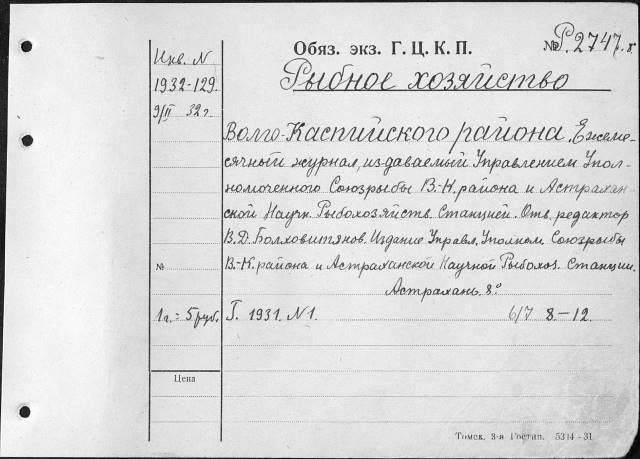 Обяз. экз. Г. Ц. К. П.
№ Р. 2747.г.
Инв. N
1932-129.
9/II 32 г.
Рыбное хозяйство
Волго-Каспийского района. Ежеме-
сячный журнал, издаваемый Управлением Упол-
номоченного Союзрыбы В.-К. района и Астрахан-
ской Научн. Рыбохозяйств. Станцией. Отв. редактор
В. Д. Болховитянов. Издание Управл. Уполном. Союзрыбы
№ В.-К. района и Астраханской Научной Рыбохоз. Станции.
Астрахань. 8°
1 г. = 5 руб. I. 1931. N 1. 6/7 8-12.
Цена
Томск. 3-я Гостип. 5314-31